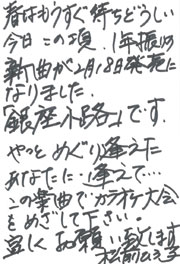 春はもうすぐ待ちどうしい
今日この頃、1年振りの
新曲が2月18日発売に
なりました。
「銀座小路」です。
やっとめぐり逢えた
あなたに…逢えて…
この新曲でカラオケ大会
をめざして下さい。
宜しくお願い致します
松前ひろ子